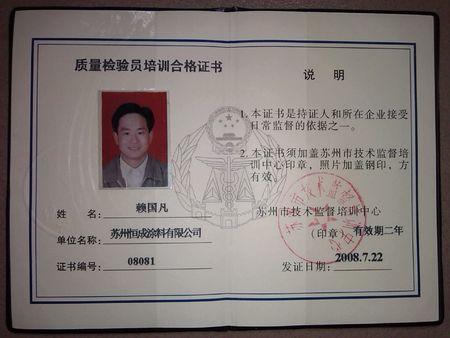 质量检验员培训合格证书
姓 名: 赖国凡
单位名称: 苏州恒成涂料有限公司
证书编号: 08081
说 明
1. 本证书是持证人和所在企业接受
日常监督的依据之一。
2. 本证书须加盖苏州市技术监督培
训中心印章，照片加盖钢印，方
有效。
苏州市技术监督培训中心
(印章) 有效期二年
发证日期: 2008.7.22